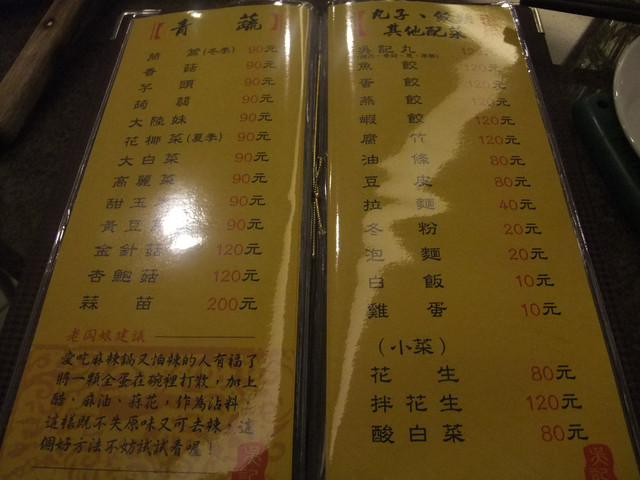 青蔬
茼蒿(冬季) 90元
香菇 90元
芋頭 90元
蒟蒻 90元
大陸妹 90元
花椰菜(夏季) 90元
大白菜 90元
高麗菜 90元
甜玉 90元
黃豆 90元
金針菇 120元
杏鮑菇 120元
蒜苗 200元
老闆娘建議
愛吃麻辣鍋又怕辣的人有福了
將一顆全蛋在碗裡打散，加上
醋、麻油、蒜花，作為沾料
這樣既不失原味又可去辣，這
個好方法不妨試試看喔！
吳記
丸子、餃類
其他配菜
吳記丸
魚餃 120元
蛋餃 120元
燕餃 120元
蝦餃 120元
腐竹 120元
油條 80元
豆皮 80元
拉麵 40元
冬粉 20元
泡麵 20元
白飯 10元
雞蛋 10元
(小菜)
花生 80元
拌花生 120元
酸白菜 80元
吳記